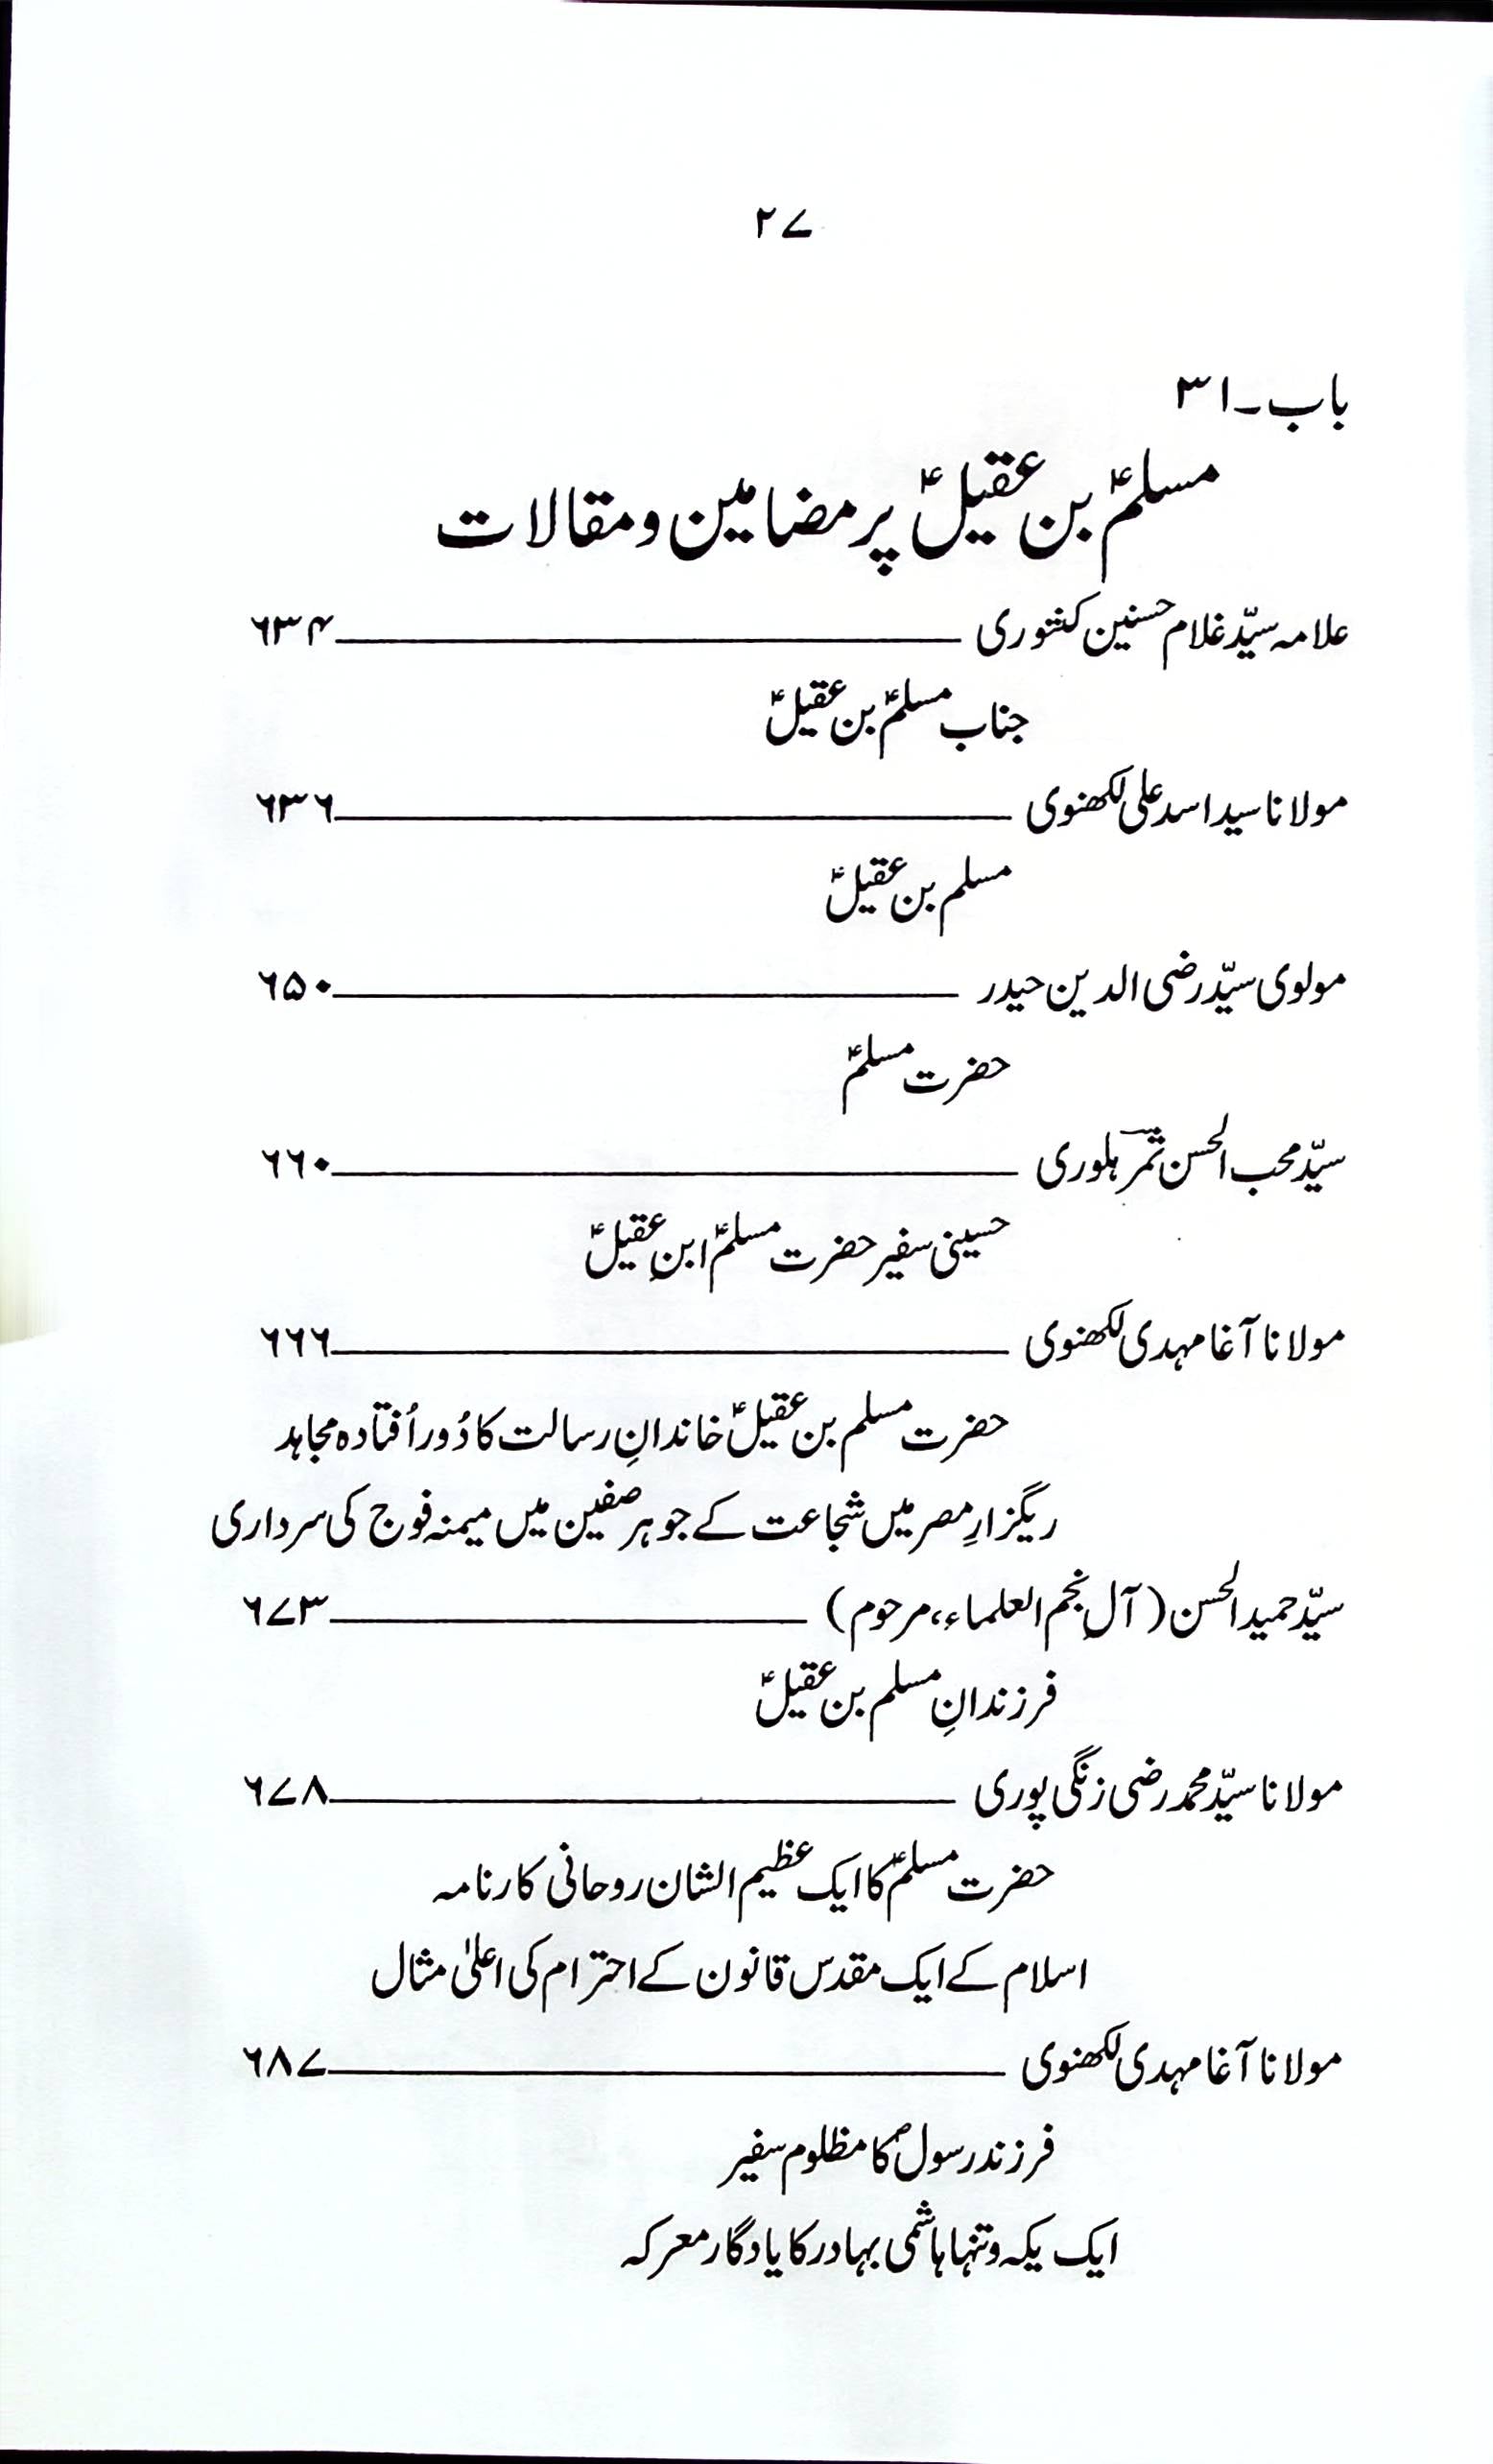 ۲۷
باب۔۳۱
مسلمؑ بن عقیلؑ پر مضامین و مقالات
علامہ سیّد غلام حسنین کنتوری ۶۳۴
جناب مسلمؑ بن عقیلؑ
مولانا سید اسد علی لکھنوی ۶۳۶
مسلم بن عقیلؑ
مولوی سیّد رضی الدین حیدر ۶۵۰
حضرت مسلمؑ
سیّد محب الحسن ثمرؔ ہلوری ۶۶۰
حسینی سفیر حضرت مسلمؑ ابنِ عقیلؑ
مولانا آغا مہدی لکھنوی ۶۶۶
حضرت مسلم بن عقیلؑ خاندانِ رسالت کا دُور اُفتادہ مجاہد
ریگزارِ مصر میں شجاعت کے جوہر صفین میں میمنہ فوج کی سرداری
سیّد حمید الحسن (آلِ نجم العلماء، مرحوم) ۶۷۳
فرزندانِ مسلم بن عقیلؑ
مولانا سیّد محمد رضی زنگی پوری ۶۷۸
حضرت مسلمؑ کا ایک عظیم الشان روحانی کارنامہ
اسلام کے ایک مقدس قانون کے احترام کی اعلیٰ مثال
مولانا آغا مہدی لکھنوی ۶۸۷
فرزند رسولؐ کا مظلوم سفیر
ایک یکہ و تنہا ہاشمی بہادر کا یادگار معرکہ